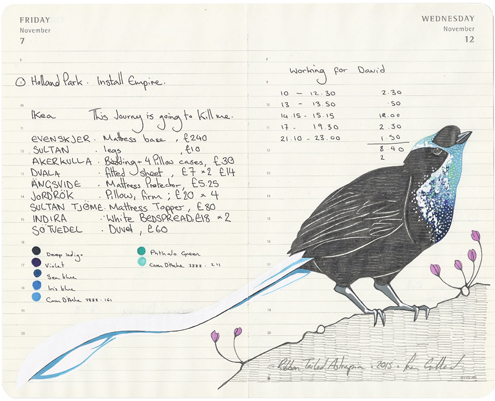 FRIDAY
November
7
Holland Park. Install Empire.
Ikea This Journey is going to kill me.
EVENSKJER. Mattress base, £240
SULTAN . legs £10
AKERKULLA. Bedding + 4 Pillow cases, £30
DVALA . fitted sheet, £7 × 2 £14
ANGSVIDE . Mattress Protector, £5.25
JORDRÖK . Pillow, firm; £20 × 4
SULTAN TJÖME. Mattress Topper, £80
INDIRA . White BEDSPREAD £18 × 2
SOTVEDEL . Duvet, £60
Deep Indigo
Violet
Sea blue
Iris blue
Caran D'Ache 7888 . 161
Phthalo Green
Caran D'Ache 3888 . 211
WEDNESDAY
November
12
Working for David
10 - 12.30 2.30
13 - 13.50 .50
14.15 - 15.15
17. 19.30 2.30
21.10 - 23.00 1.50
8 40
2
Ribbon Tailed Astrapia . 2015 .